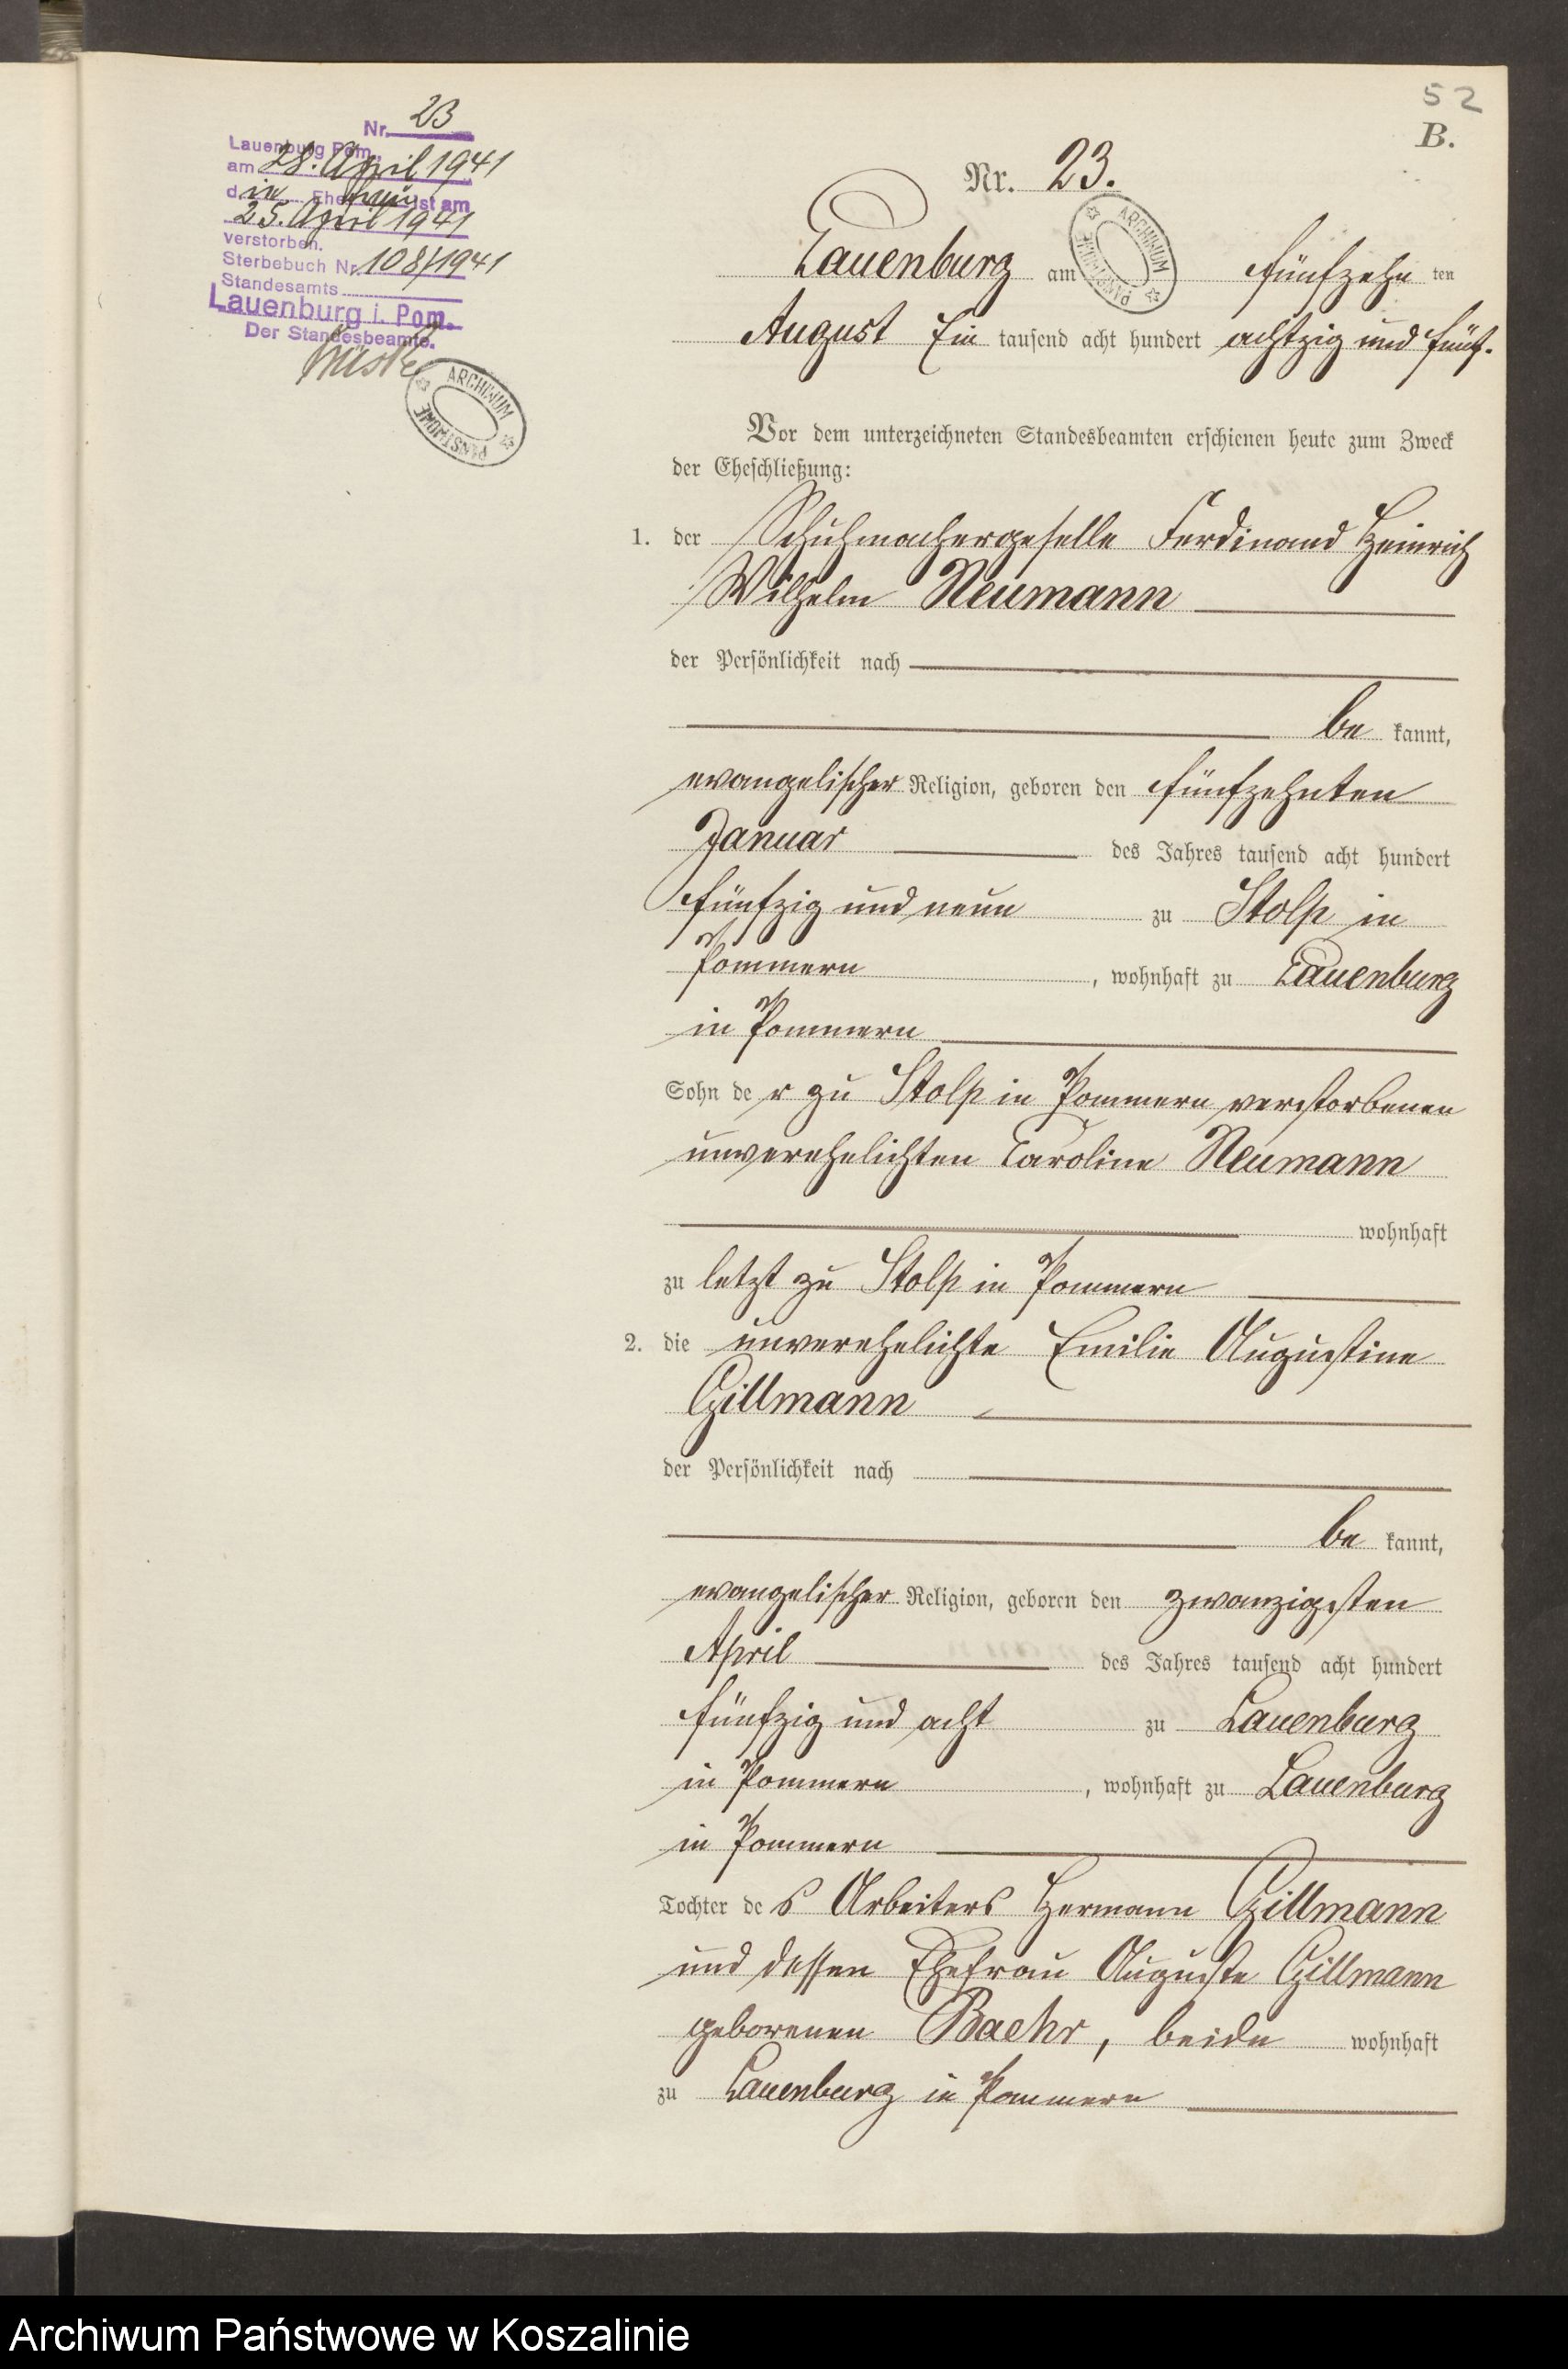 52
B.
Nr. 23
Lauenburg Pom.,
am 28. April 1941
die Ehefrau ist am
25. April 1941
verstorben.
Sterbebuch Nr. 108/1941
Standesamts
Lauenburg i. Pom.
Der Standesbeamte.
ARCHIWUM PAŃSTWOWE
Nr. 23.
Lauenburg am fünfzehn ten
ARCHIWUM PAŃSTWOWE
August Ein tausend acht hundert achtzig und fünf.
Vor dem unterzeichneten Standesbeamten erschienen heute zum Zweck
der Eheschließung:
1. der Schuhmachergeselle Ferdinand Heinrich
Wilhelm Neumann
der Persönlichkeit nach
be kannt,
evangelischer Religion, geboren den fünfzehnten
Januar des Jahres tausend acht hundert
fünfzig und neun zu Stolp in
Pommern, wohnhaft zu Lauenburg
in Pommern
Sohn de r zu Stolp in Pommern verstorbenen
unverehelichten Caroline Neumann
wohnhaft
zu letzt zu Stolp in Pommern
2. die unverehelichte Emilie Augustine
Gillmann
der Persönlichkeit nach
be kannt,
evangelischer Religion, geboren den zwanzigsten
April des Jahres tausend acht hundert
fünfzig und acht zu Lauenburg
in Pommern, wohnhaft zu Lauenburg
in Pommern
Tochter de s Arbeiters Hermann Gillmann
und dessen Ehefrau Auguste Gillmann
geborenen Baehr, beide wohnhaft
zu Lauenburg in Pommern
Archiwum Państwowe w Koszalinie